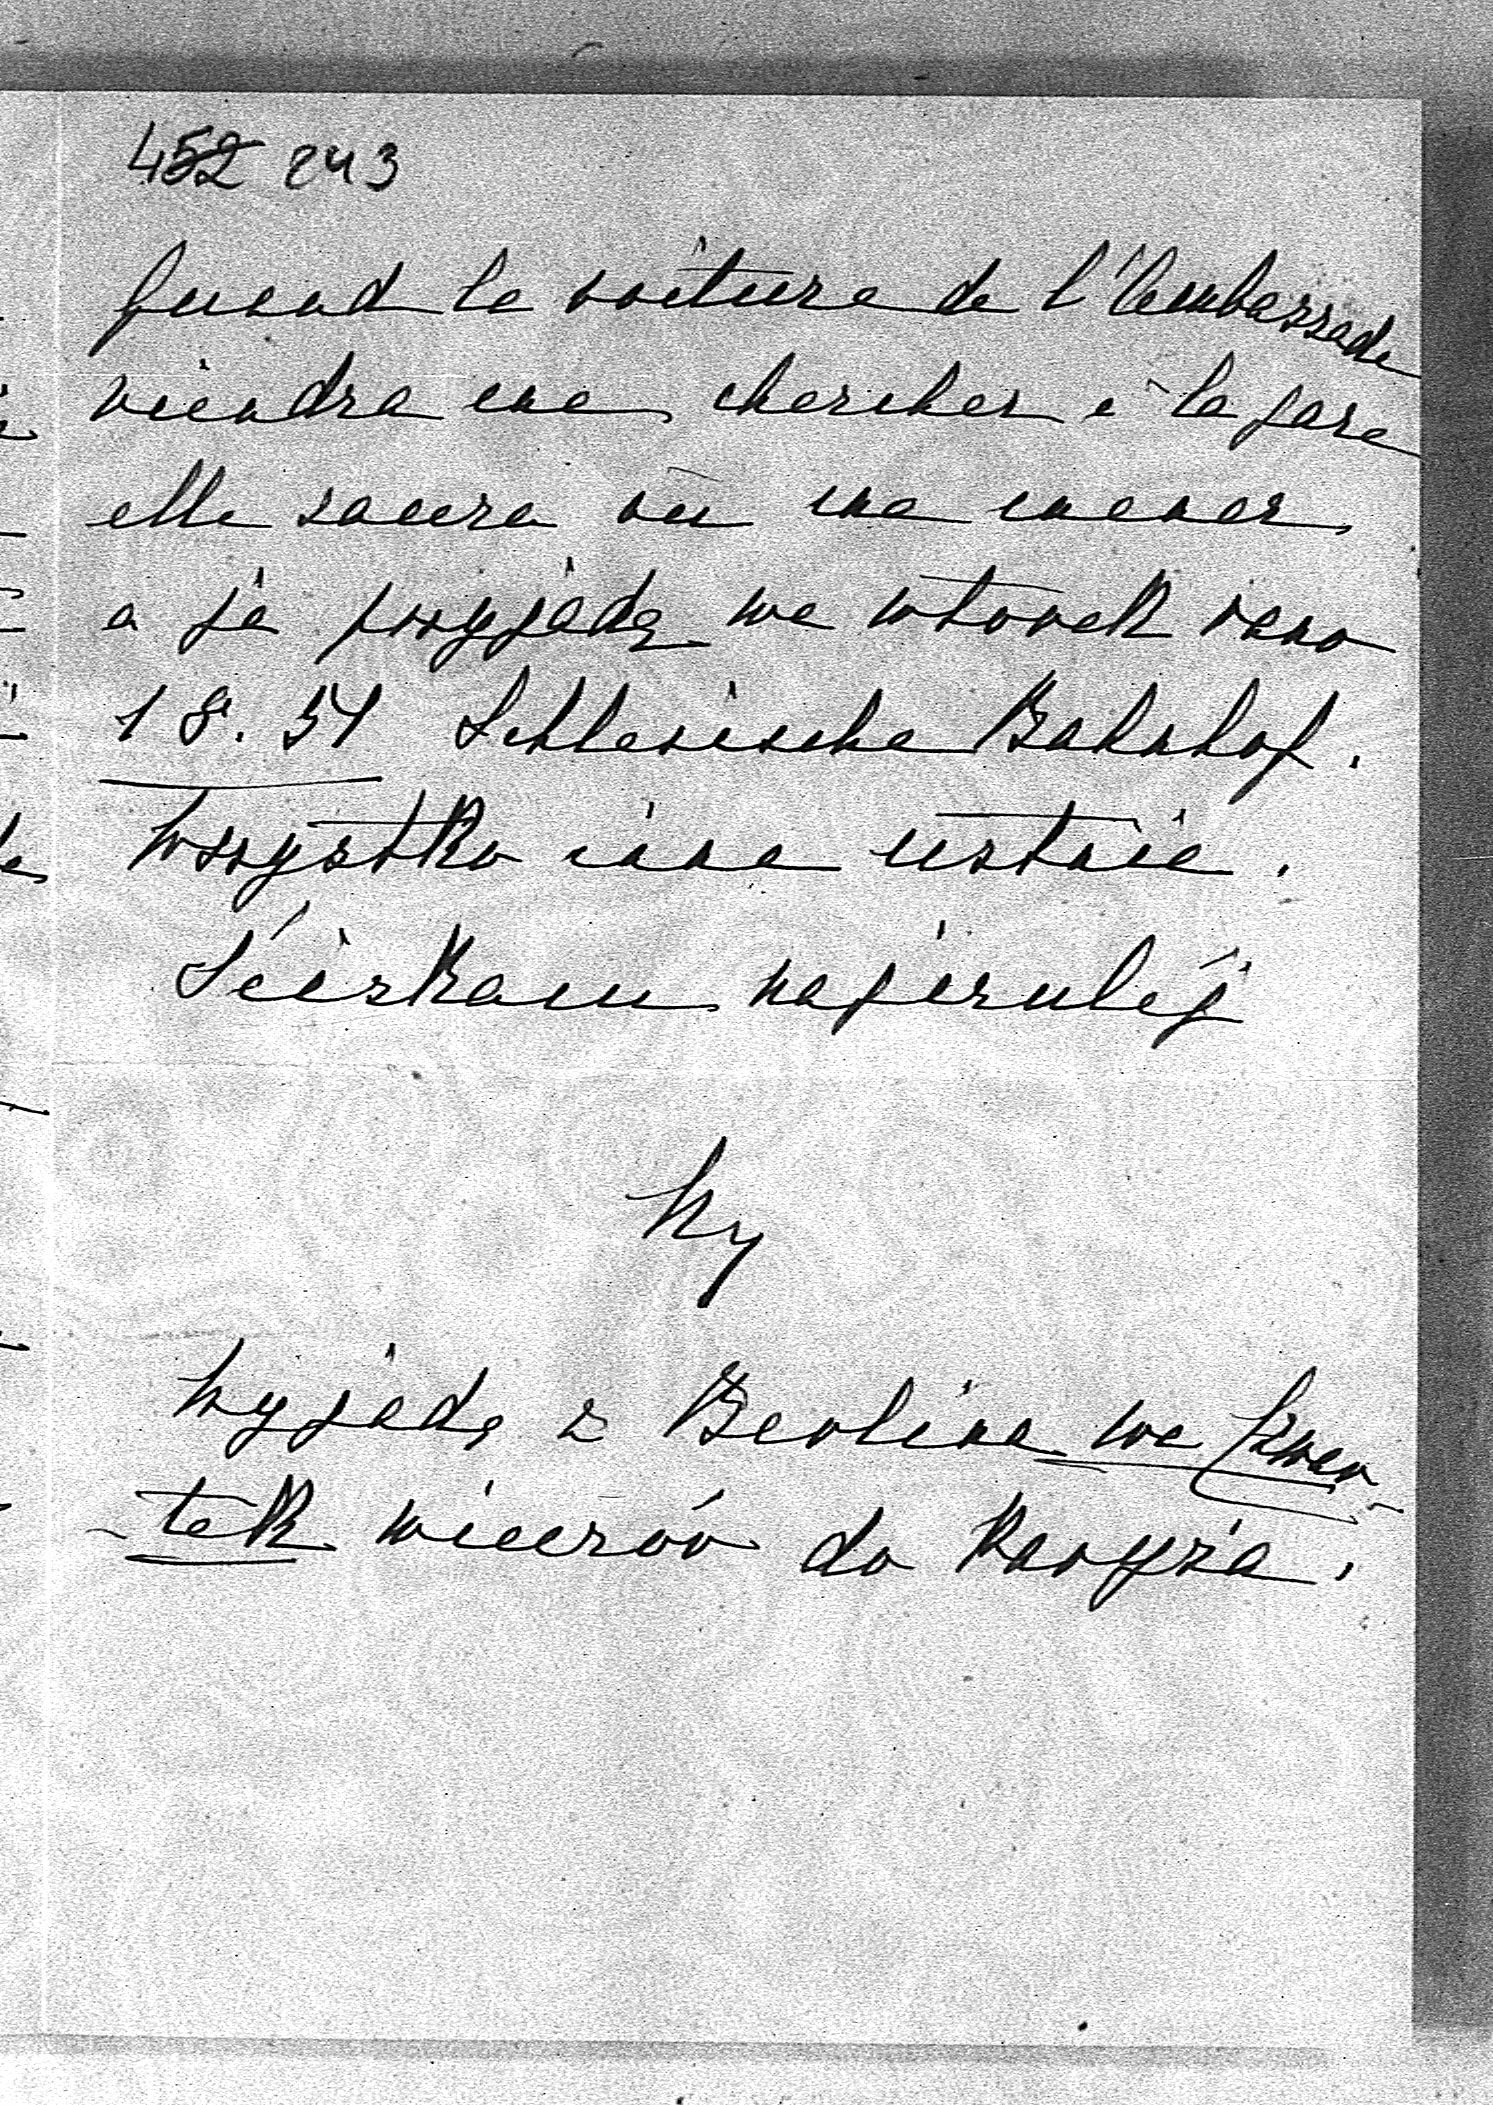 452 243
quand la voiture de l'Ambassade
viendra me chercher à la gare
elle saura où me mener
a ja przyjadę we wtorek rano
1 8. 51 Schlesische Bahnhof.
Wszystko inne ustnie.
Ściskam najczulej
Wyjadę z Berlina we czwar
-tek wieczór do Paryża.